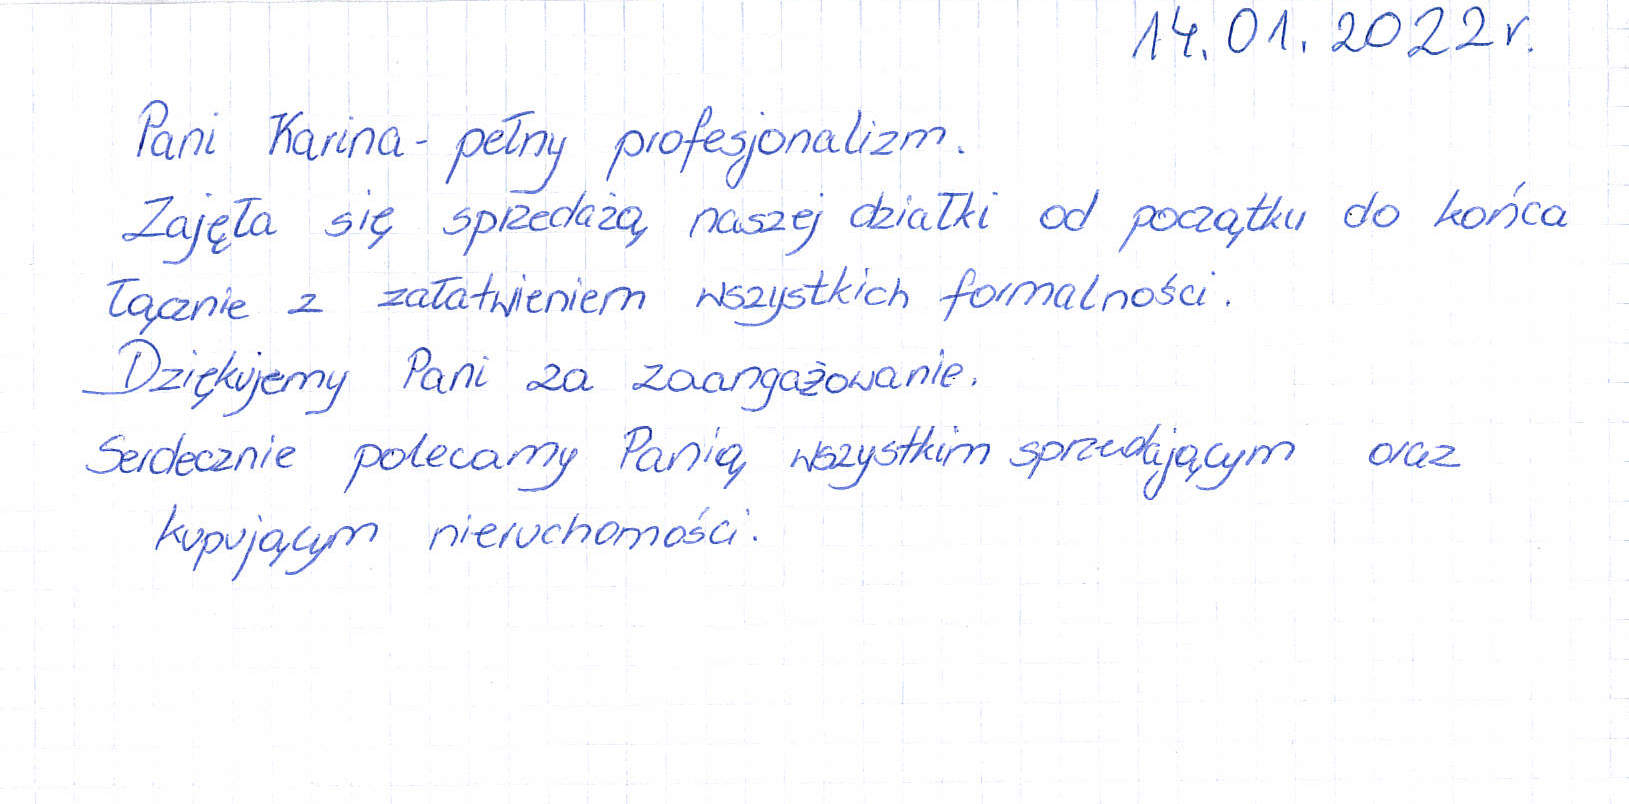 14.01.2022r.
Pani Karina - pełny profesjonalizm.
Zajęła się sprzedażą naszej działki od początku do końca
łącznie z załatwieniem wszystkich formalności.
Dziękujemy Pani za zaangażowanie.
Serdecznie polecamy Panią wszystkim sprzedającym oraz
kupującym nieruchomości.